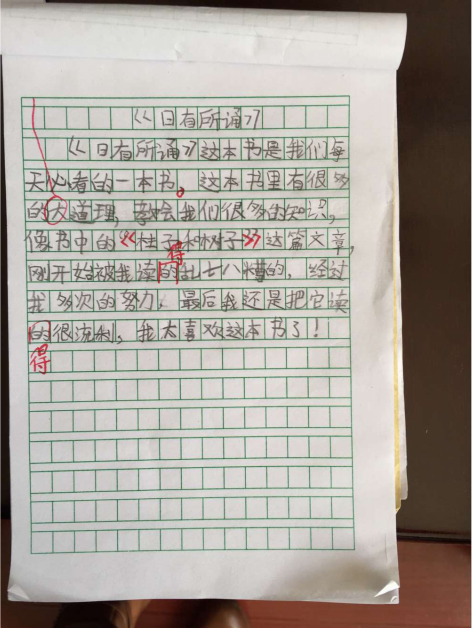 《日有所诵》
《日有所诵》这本书是我们每
天必看的一本书。这本书里有很多
的大道理,教会我们很多的知识,
像书中的《柱子和树子》这篇文章,
得
刚开始被我读的乱七八糟的,经过
我多次的努力,最后我还是把它读
的很流利,我太喜欢这本书了!
得